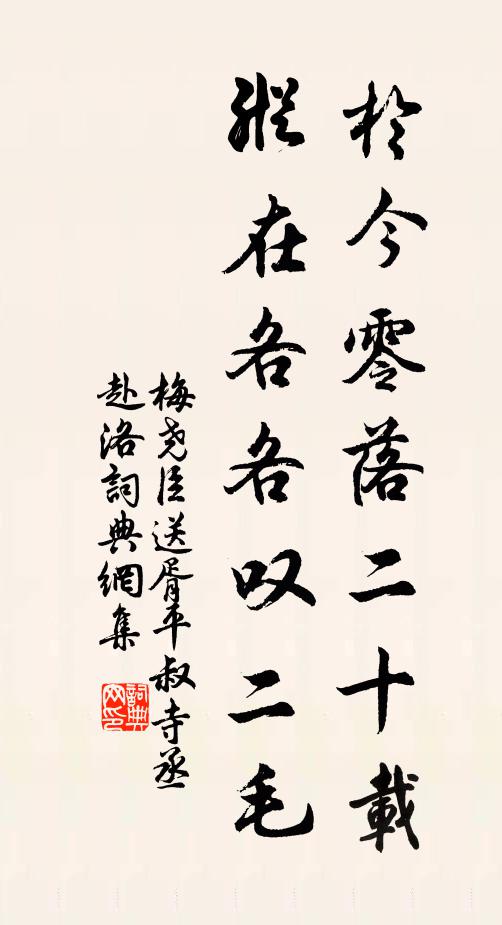 於今零落二十載
縱在各各叹二毛
梅尧臣送胥平叔寺丞
赴洛詞典網集
詞典
网印